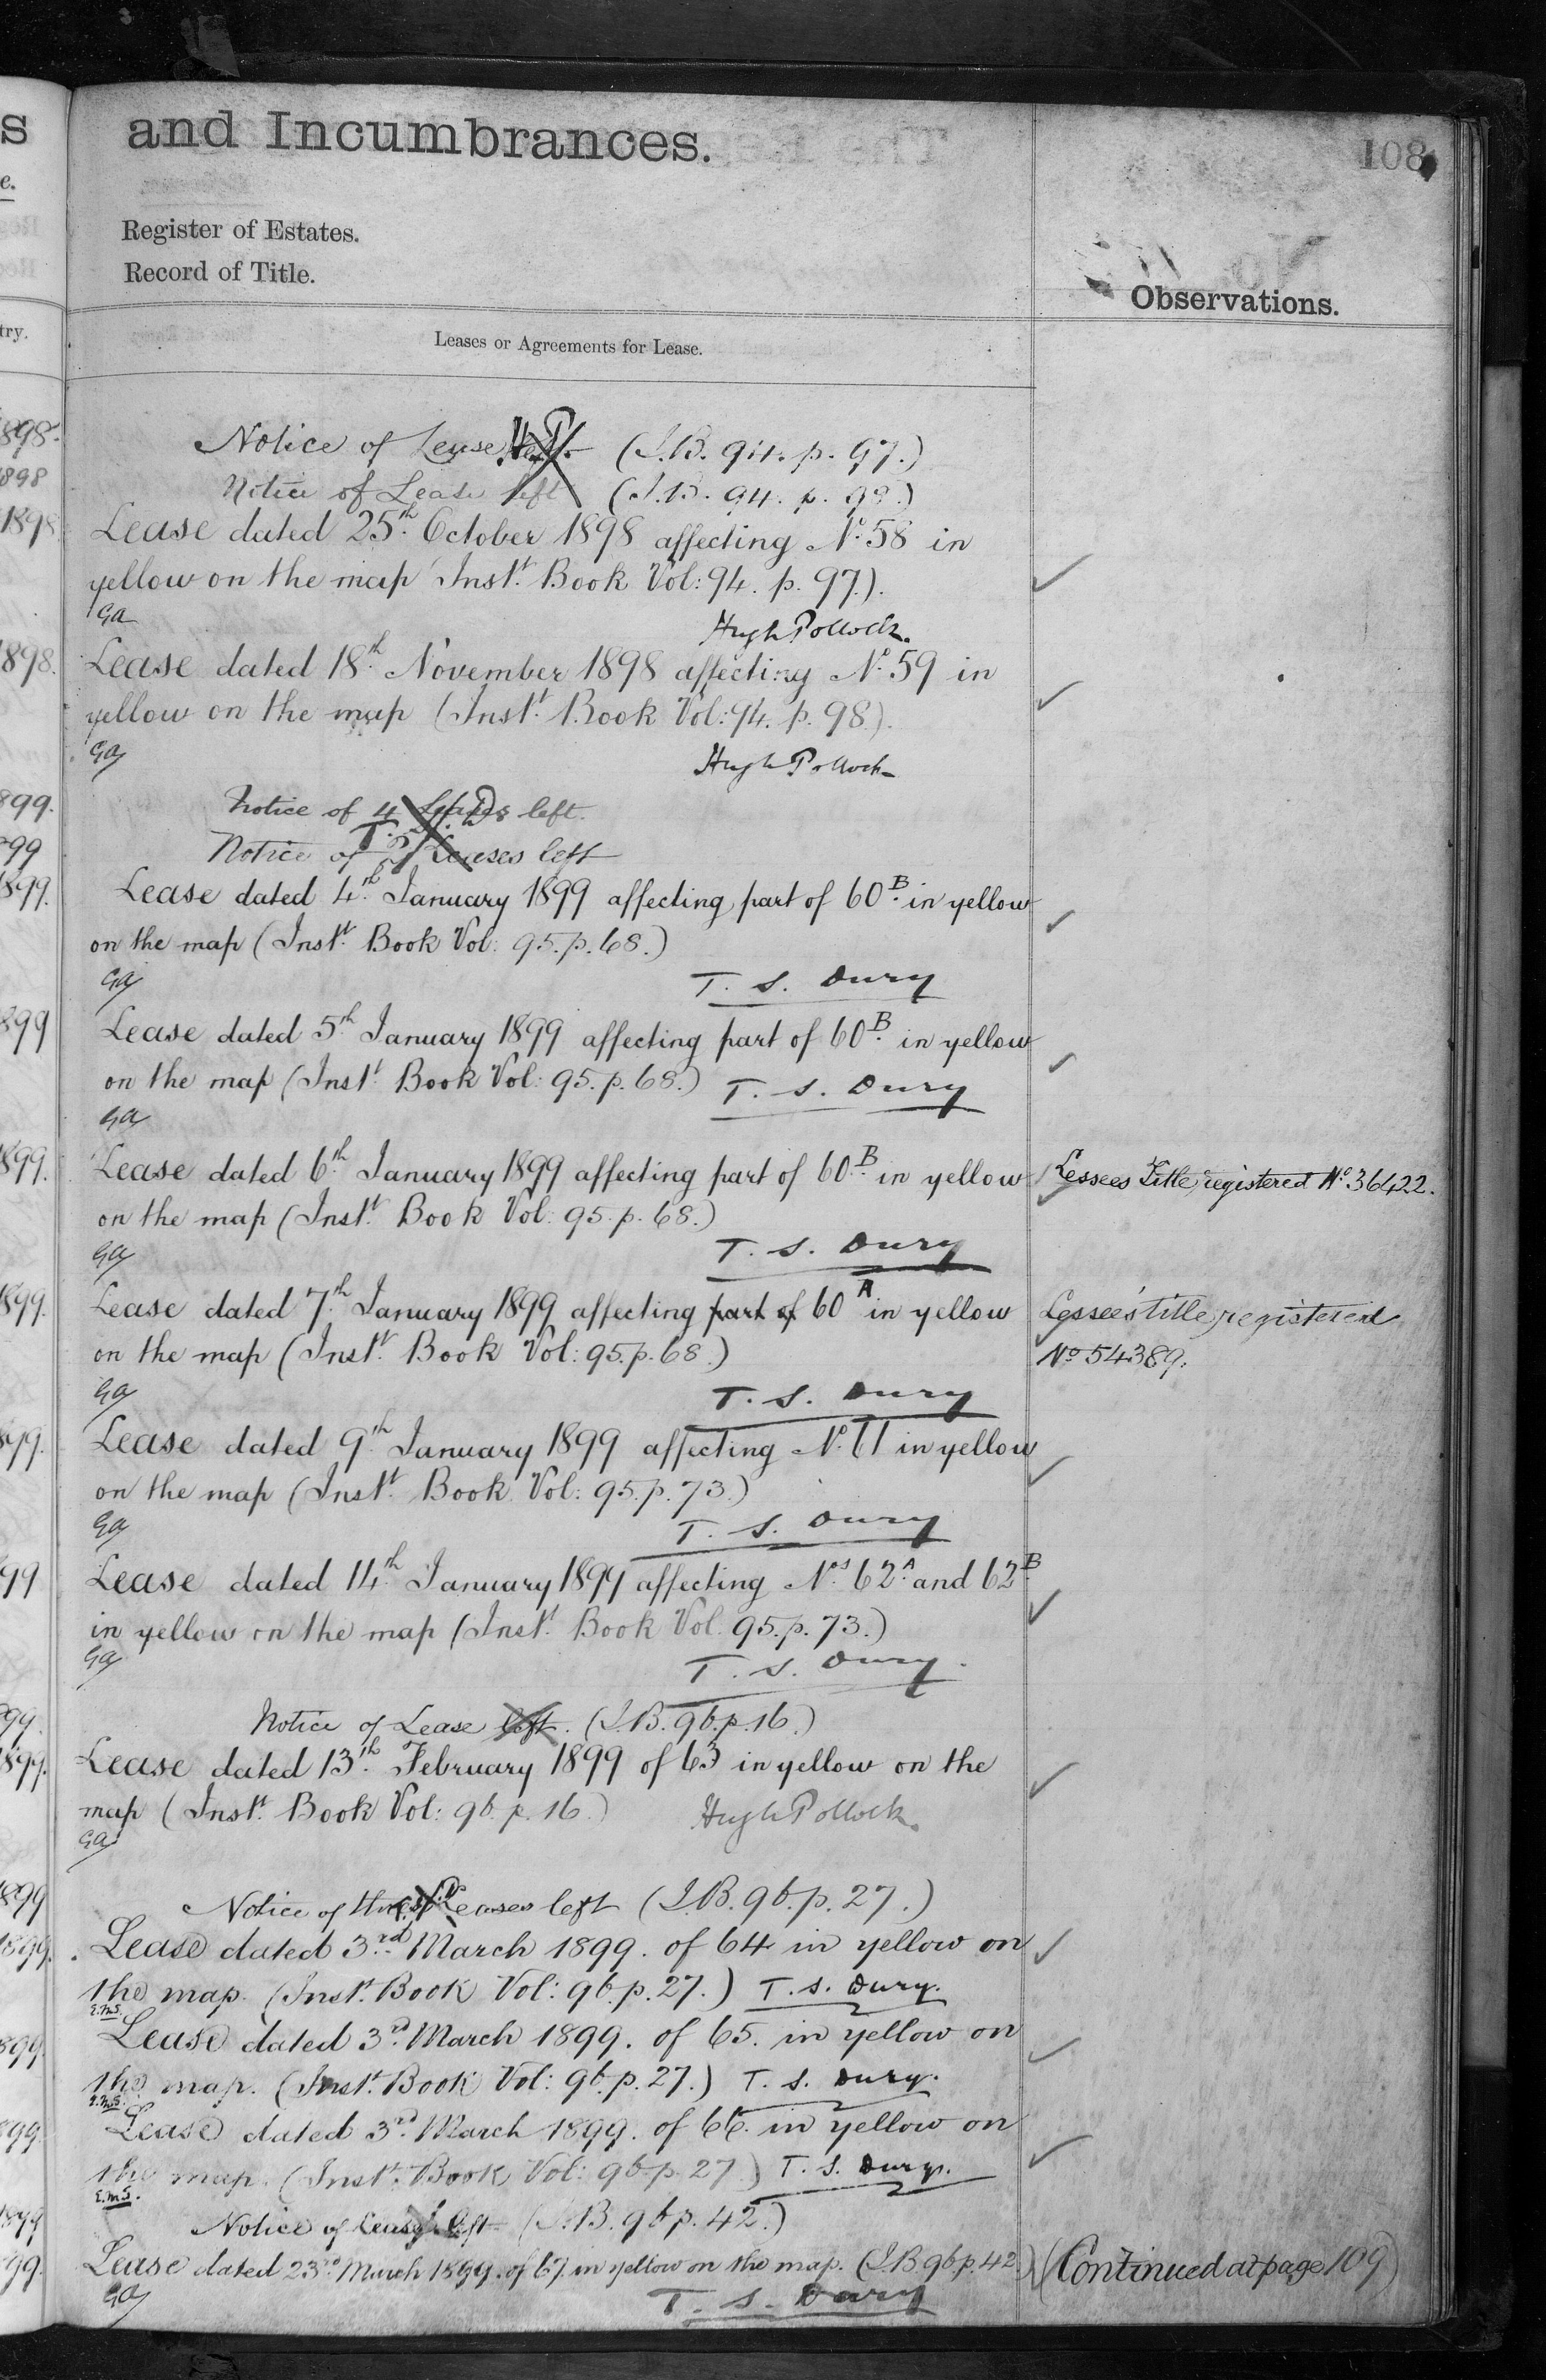 s
and Incumbrances.
108
e.
Register of Estates.
Record of Title.
Observations.
try.
Leases or Agreements for Lease.
898.
Notice of Lease left (I.B. 94. p. 97.)
898
Notice of Lease left (I.B. 94. p. 98.)
1898.
Lease dated 25th October 1898 affecting No. 58 in
yellow on the map (Instt. Book Vol: 94. p. 97.).
Ga
Hugh Pollock.
1898.
Lease dated 18th November 1898 affecting No. 59 in
yellow on the map (Instt. Book Vol: 94. p. 98.).
Ga
Hugh Pollock
899.
Notice of 4 Leases left.
99
Notice of Leases left
1899.
Lease dated 4th January 1899 affecting part of 60B. in yellow
on the map (Instt. Book Vol: 95. p. 68.)
Ga
T. S. Dury
899
Lease dated 5th January 1899 affecting part of 60B. in yellow
on the map (Instt. Book Vol: 95. p. 68.) T. S. Dury
Ga
1899.
Lease dated 6th January 1899 affecting part of 60B. in yellow
Lessees Title registered No. 36422.
on the map (Instt. Book Vol: 95. p. 68.)
Ga
T. S. Dury
1899.
Lease dated 7th January 1899 affecting part of 60A in yellow
Lessee's title registered
on the map (Instt. Book Vol: 95. p. 68.)
No 54389.
Ga
T. S. Dury
899.
Lease dated 9th January 1899 affecting No. 61 in yellow
on the map (Instt. Book Vol: 95. p. 73.)
Ga
T. S. Dury
99
Lease dated 14th January 1899 affecting Nos. 62A and 62B
in yellow on the map (Instt. Book Vol. 95. p. 73.)
Ga
T. S. Dury.
99.
Notice of Lease left. (I.B. 96. p. 16.)
1899.
Lease dated 13th February 1899 of 63 in yellow on the
map (Instt. Book Vol: 96. p. 16.) Hugh Pollock.
Ga
1899
Notice of three Leases left (I.B. 96. p. 27.)
1899.
Lease dated 3rd March 1899. of 64 in yellow on
the map. (Instt. Book Vol: 96. p. 27.) T. S. Dury.
E.M.S.
899.
Lease dated 3rd March 1899. of 65. in yellow on
the map. (Instt. Book Vol: 96. p. 27.) T. S. Dury.
E.M.S.
899
Lease dated 3rd March 1899. of 66. in yellow on
the map. (Instt. Book Vol: 96. p. 27.) T. S. Dury.
E.M.S.
1899
Notice of lease left (I.B. 96 p. 42.)
99.
Lease dated 23rd March 1899. of 67 in yellow on the map. (I.B 96 p. 42.)
(Continued at page 109)
Ga
T. S. Dury